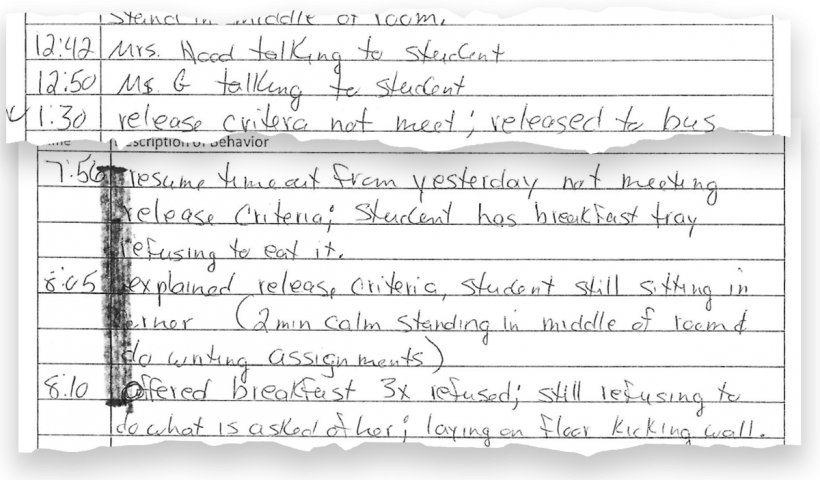 stand in middle of room.
12:42 Mrs. Hood talking to student
12:50 Ms G talking to student
1:30 release critera not meet; released to bus
Description of Behavior
7:56 resume timeout from yesterday not meeting
release criteria; student has breakfast tray
refusing to eat it.
8:05 explained release criteria, student still sitting in
corner (2 min calm standing in middle of room &
do writing assignments)
8:10 offered breakfast 3x refused; still refusing to
do what is asked of her; laying on floor kicking wall.